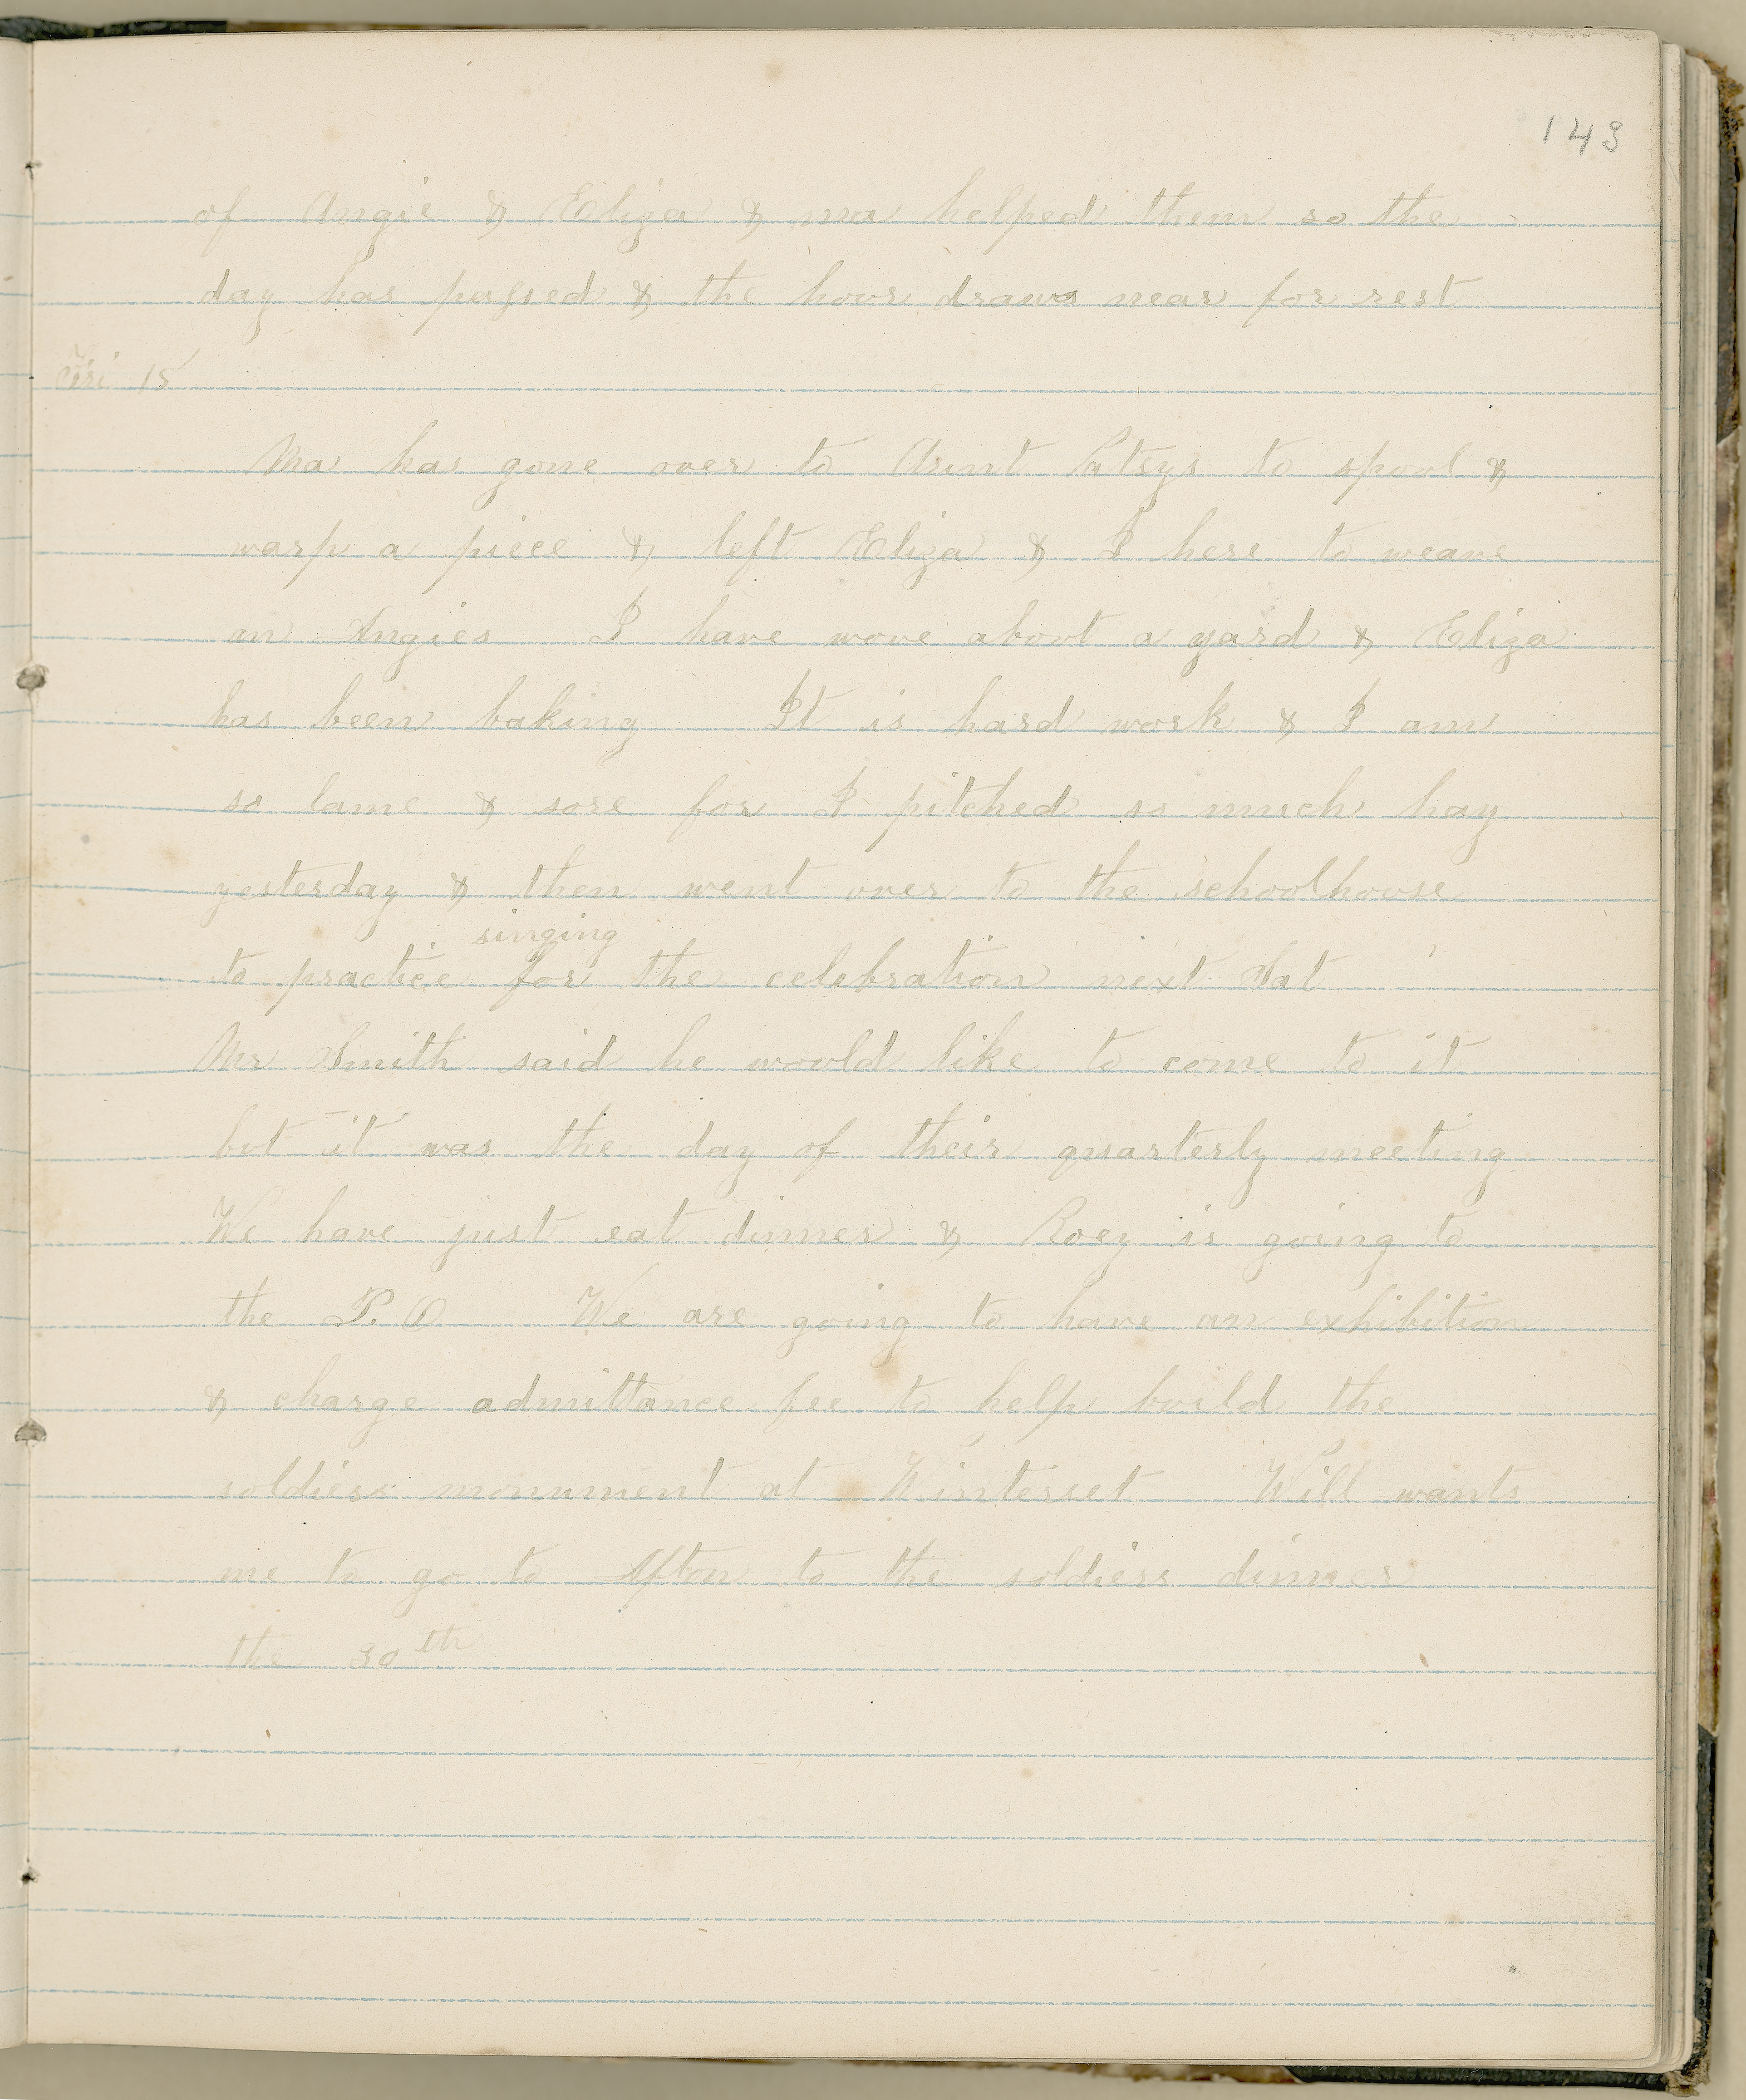 143
of Angie & Eliza & ma helped them so the
day has passed & the hour draws near for rest
Fri 15
Ma has gone over to Aunt Patsys to spool &
warp a piece & left Eliza & I here to weave
on Angies I have wove about a yard & Eliza
has been baking It is hard work & I am
so lame & sore for I pitched so much hay
yesterday & then went over to the schoolhouse
singing
to practice for the celebration next Sat
Mr Smith said he would like to come to it
but it was the day of their quarterly meeting
We have just eat dinner & Roey is going to
the P. O We are going to have an exhibition
& charge admittance fee to help build the
soldiers monument at Winterset Will wants
me to go to Afton to the soldiers dinner
the 30th